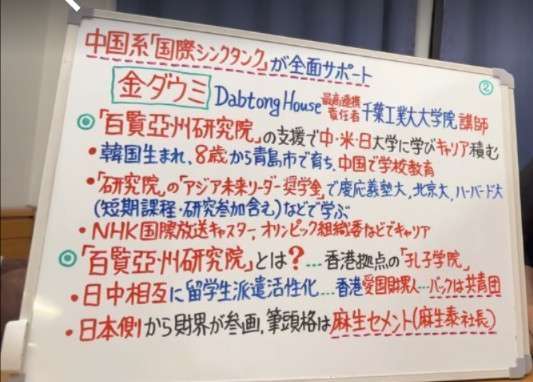 中国系「国際シンクタンク」が全面サポート
②
金ダウミ DabtongHouse 最高連携責任者 千葉工業大大学院 講師
◎「百賢亞洲研究院」の支援で中・米・日大学に学びキャリア積む
・韓国生まれ、8歳から青島市で育ち、中国で学校教育
・「研究院」の「アジア未来リーダー奨学金」で慶応義塾大、北京大、ハーバード大
(短期課程・研究参加含む)などで学ぶ
・NHK国際放送キャスター、オリンピック組織委などでキャリア
◎「百賢亞洲研究院」とは?…香港拠点の「孔子学院」
・日中相互に留学生派遣活性化…香港愛国財界人…バックは共青団
・日本側から財界が参画、筆頭格は麻生セメント(麻生泰社長)